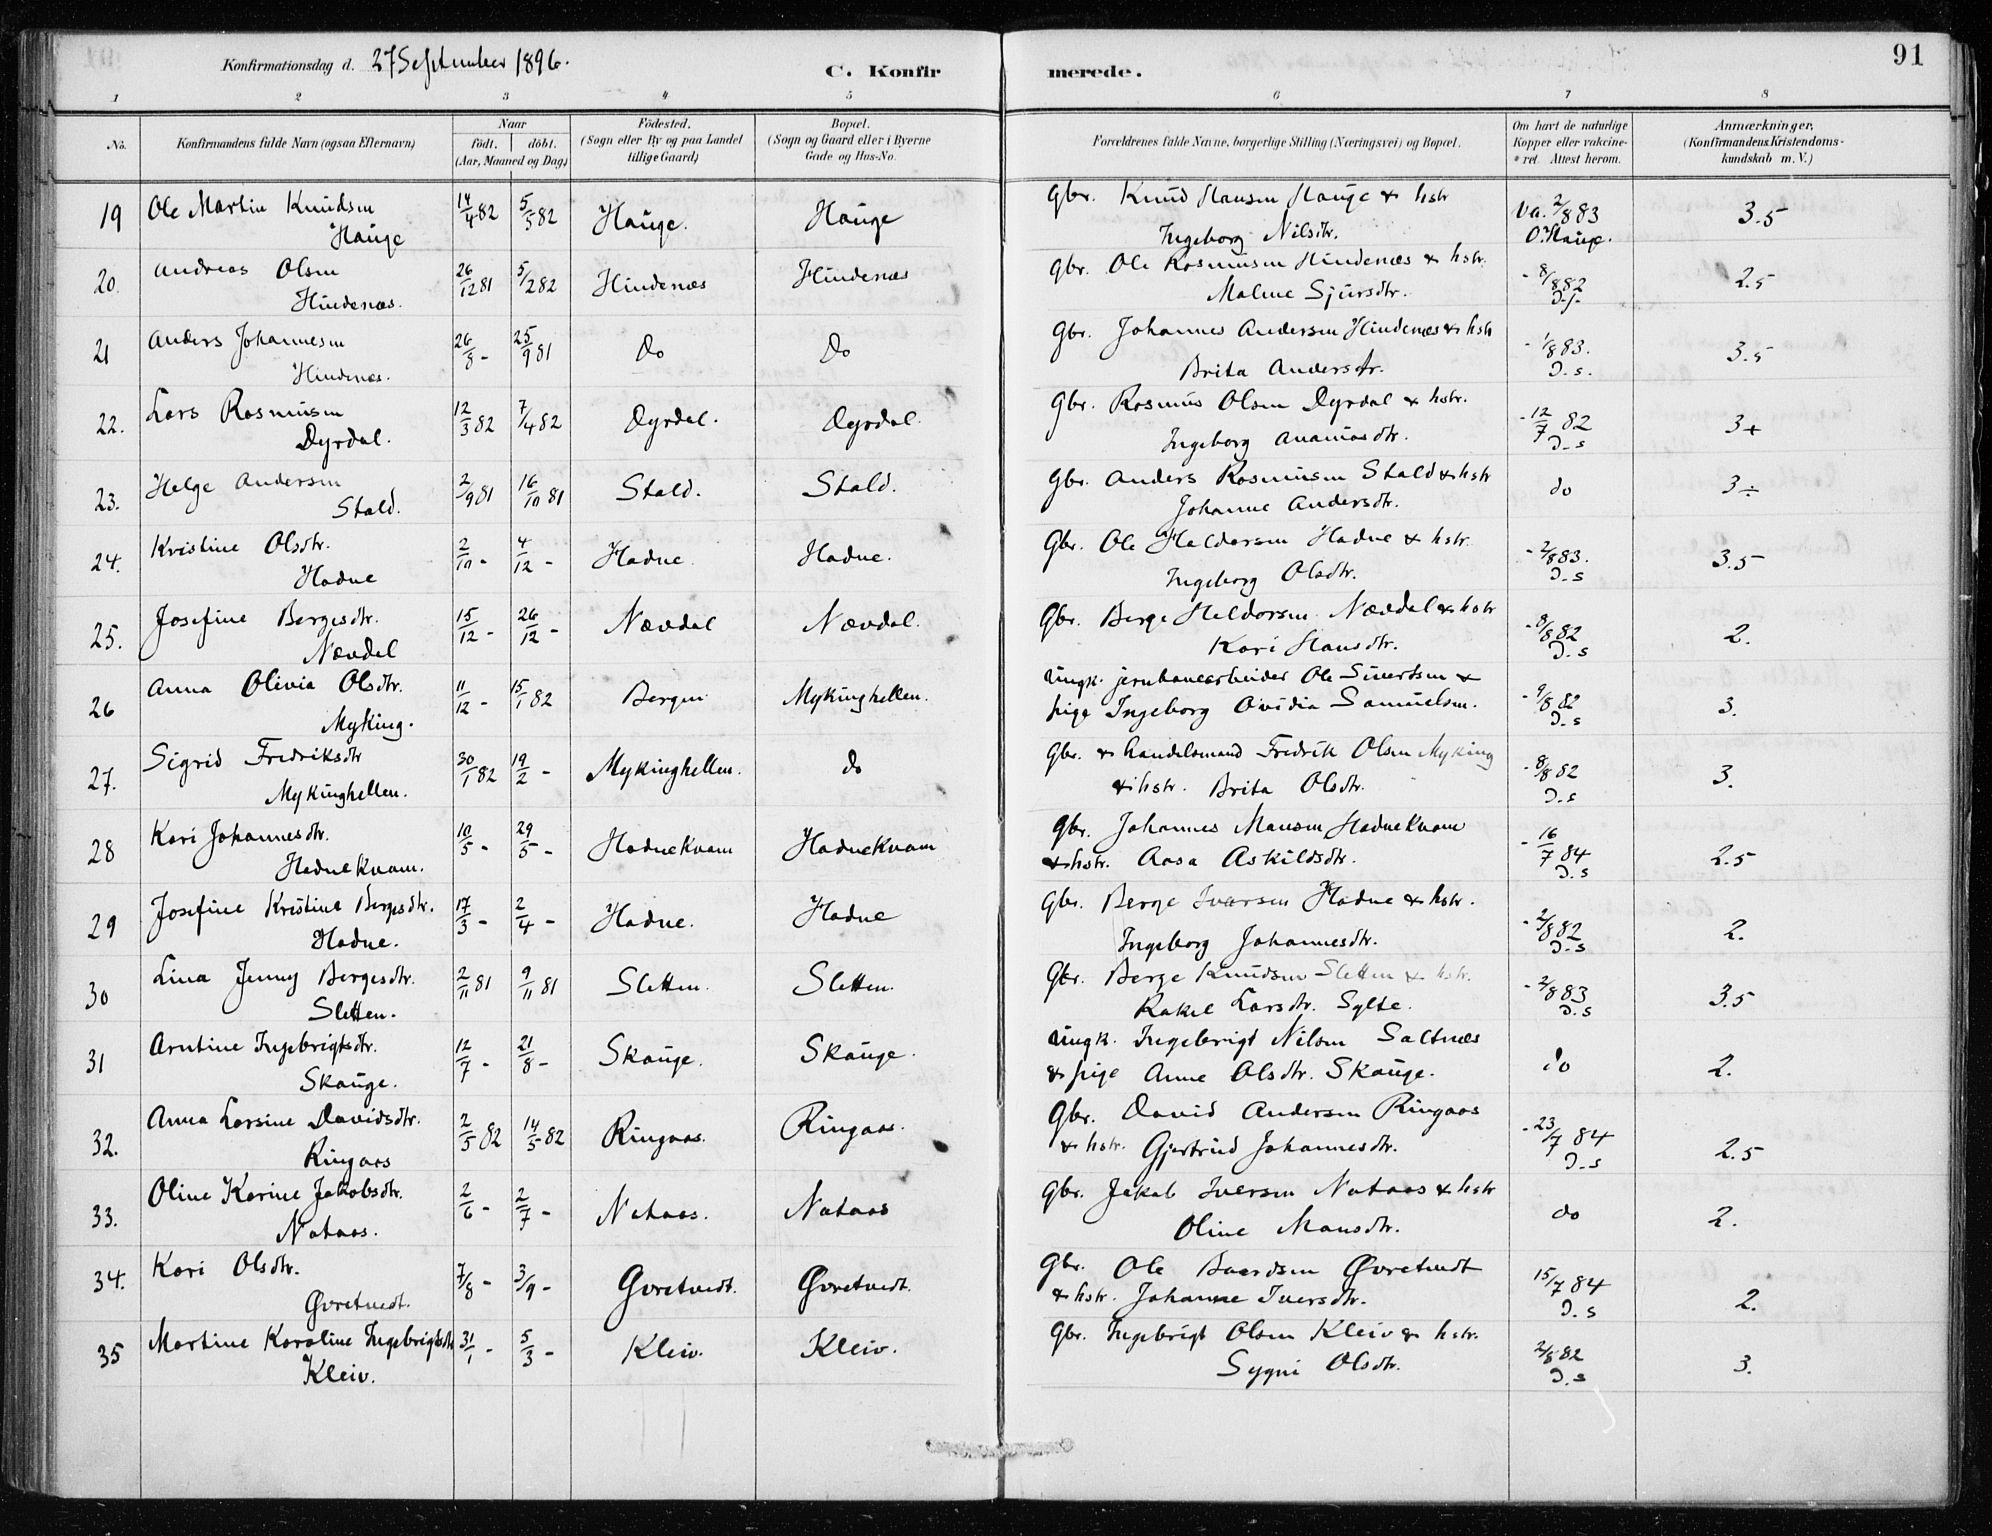 91
Konfirmationsdag d. 27 September 1896.
C. Konfirmerede.
1 2 3 4 5 6 7 8
No.
Konfirmandens fulde Navn (ogsaa Efternavn)
Naar
födt. döbt.
(Aar, Maaned og Dag)
Födested.
(Sogn eller By og paa Landet
tillige Gaard)
Bopæl.
(Sogn og Gaard eller i Byerne
Gade og Hus-No.
Forældrenes fulde Navne, borgerlige Stilling (Næringsvei) og Bopæl.
Om havt de naturlige
Kopper eller vakcine-
ret. Attest herom.
Anmærkninger,
(Konfirmandens Kristendoms-
kundskab m. V.)
19 Ole Martin Knudsen 14/4 82 5/5 82 Hauge. Hauge Gbr. Knud Hansen Hauge & hstr Va. 2/8 83 3.5
Hauge Ingeborg Nilsdtr. O. Hauge.
20. Andreas Olsen 26/12 81 5/2 82 Hindenæs Hindenæs Gbr. Ole Rasmusen Hindenæs & hstr. - 8/8 82 2.5
Hindenæs. Malene Sjursdtr.
21 Anders Johannesen 26/8 - 25/9 81 do do Gbr. Johannes Andersen Hindenæs & hstr - 1/8 83. 3.5
Hindenæs. Brita Andersdtr. D.s.
22. Lars Rasmusen 12/3 82 7/4 82 Dyrdal. Dyrdal. Gbr. Rasmus Olsen Dyrdal & hstr. - 12/7 82 3+
Dyrdal. Ingeborg Ananiasdtr. D.s
23. Helge Andersen 2/9 81 16/10 81 Stald. Stald. Gbr. Anders Rasmusen Stald & hstr do 3÷
Stald. Johanne Andersdtr.
24. Kristine Olsdtr. 2/10 - 4/12 - Hadne. Hadne. Gbr. Ole Haldorsen Hadne & hstr. - 2/8 83. 3.5
Hadne Ingeborg Olsdtr. D.s
25. Josefine Bergesdtr. 15/12 - 26/12 - Nævdal Nævdal. Gbr. Berge Haldorsen Nævdal & hstr - 8/8 82 2.
Nævdal Kari Hansdtr. D.s
26 Anna Olivia Olsdtr. 11/12 - 15/1 82 Bergen Mykinghellen. Ungk. jernbanearbeider Ole Siversen & - 9/8 82 3.
Myking. pige Ingeborg Ovidia Samuelsen. D.s
27. Sigrid Fredriksdtr 30/1 82 19/2 - Mykinghellen. do Gbr. & handelsmand Fredrik Olsen Myking - 8/8 82 3.
Mykinghellen. & hstr. Brita Olsdtr. D.s
28 Kari Johannesdtr. 10/5 - 29/5 - Hadnekvam Hadnekvam Gbr. Johannes Mansen Hadnekvam - 16/7 84 2.5
Hadnekvam. & hstr. Aasa Askildsdtr. D.s
29 Josefine Kristine Bergesdtr. 17/3 - 2/4 - Hadne. Hadne Gbr. Berge Iversen Hadne & hstr. - 2/8 82 2.
Hadne. Ingeborg Johannesdtr. D.s
30 Lina Jenny Bergesdtr. 2/11 81 9/11 81 Sletten. Sletten. Gbr. Berge Knudsen Sletten & hstr. - 2/8 83 3.5
Sletten. Rakel Larsdtr. Sylte. D.s
31 Arntine Ingebrigtsdtr. 12/7 - 21/8 - Skauge. Skauge. Ungk. Ingebrigt Nilsen Saltnæs do 2.
Skauge. & pige Anne Olsdtr. Skauge.
32. Anna Larsine Davidsdtr. 2/5 82 14/5 82 Ringaas. Ringaas. Gbr. David Andersen Ringaas - 23/7 84 2.5
Ringaas & hstr. Gjertrud Johannesdtr. D.s
33. Oline Karine Jakobsdtr. 2/6 - 2/7 - Nataas. Nataas Gbr. Jakob Iversen Nataas & hstr do 2.
Nataas. Oline Mansdtr.
34. Kari Olsdtr. 7/8 - 3/9 - Øvretvedt. Øvretvedt. Gbr. Ole Baardsen Øvretvedt 15/7 84 2.
Øvretvedt. & hstr. Johanne Iversdtr. D.s
35 Martine Karoline Ingebrigtsdtr 31/1 - 5/3 - Kleiv. Kleiv. Gbr. Ingebrigt Olsen Kleiv & hstr. 2/8 82 3.
Kleiv. Sygni Olsdtr. D.s